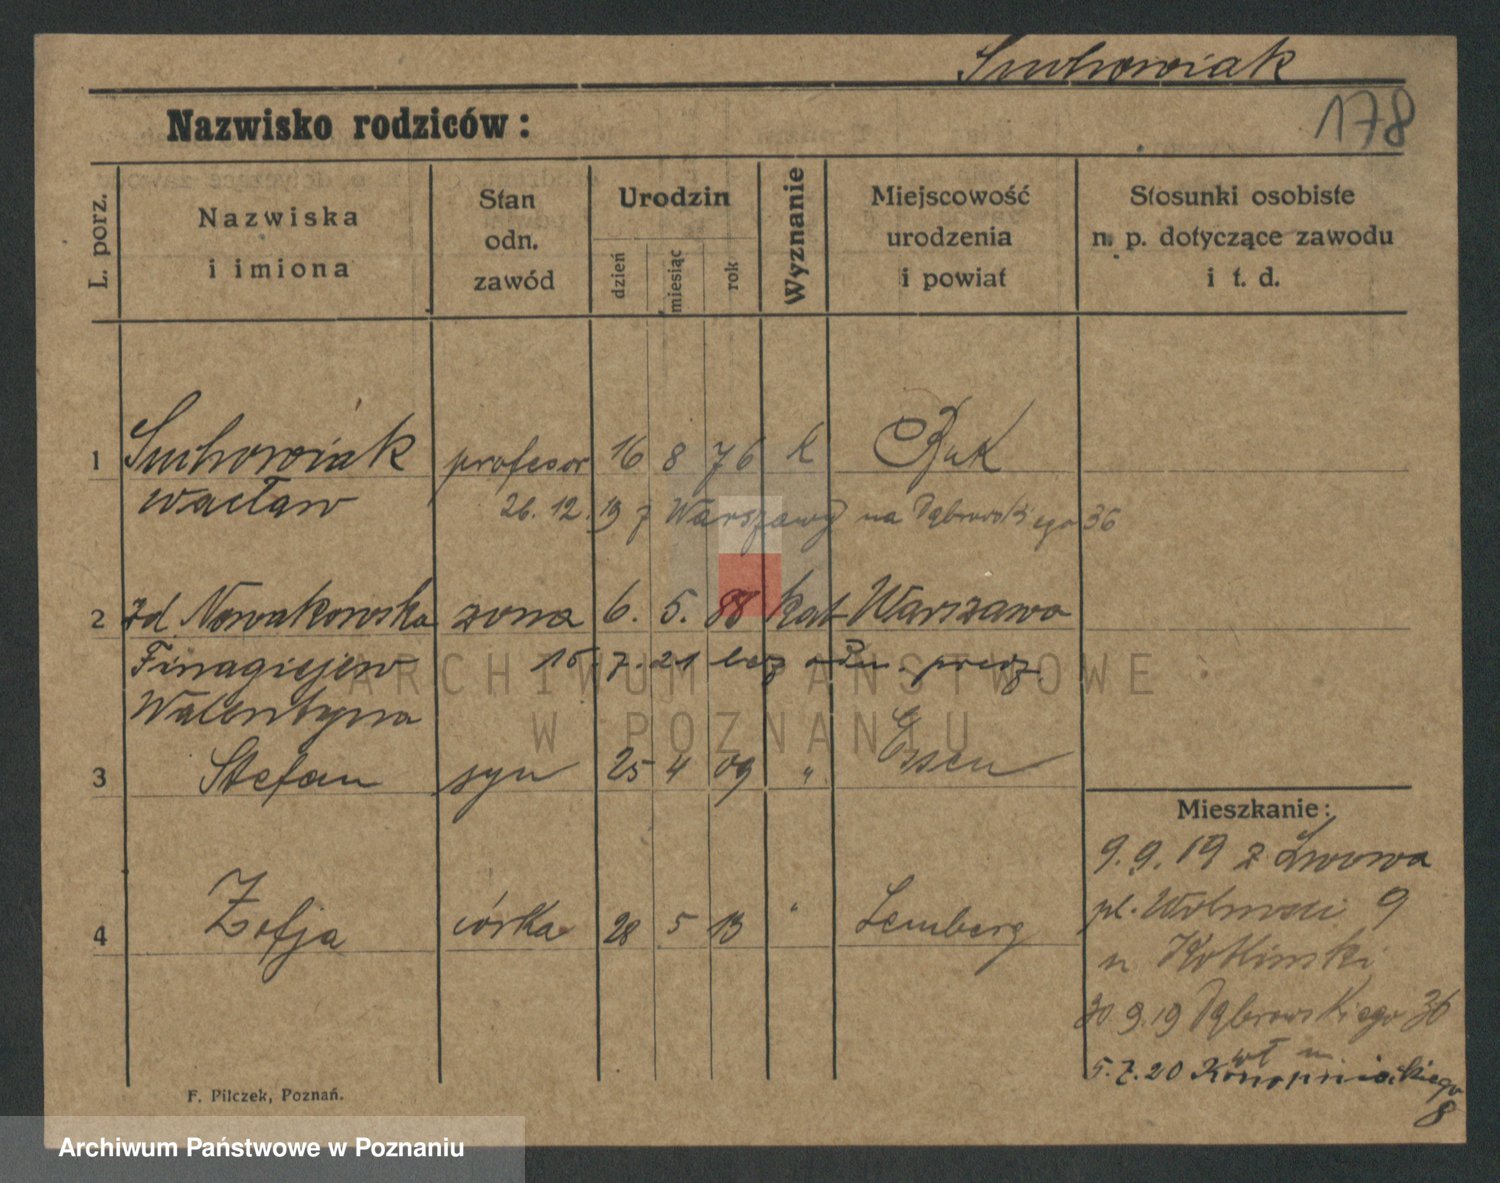 Suchowiak
178
Nazwisko rodziców:
L. porz.
Nazwiska
i imiona
Stan
odn.
zawód
Urodzin
dzień
miesiąc
rok
Wyznanie
Miejscowość
urodzenia
i powiat
Stosunki osobiste
n. p. dotyczące zawodu
i t. d.
1 Suchowiak profesor 16 8 76 k Buk
Wacław 26. 12. 19 z Warszawy na Dąbrowskiego 36
2 zd. Nowakowska żona 6. 5. 88 kat Warszawa
Finagiejew 15. 7. 21 bez
Walentyna
3 Stefan syn 25 4 09 " Essen
4 Zofja córka 28 5 13 " Lemberg
Mieszkanie:
9. 9. 19 z Lwowa
pl. Wolności 9
u Kotlinski
30 9. 19 Dąbrowskiego 36
5. 7. 20
8
F. Pilczek, Poznań.
ARCHIWUM PAŃSTWOWE
W POZNANIU
Archiwum Państwowe w Poznaniu